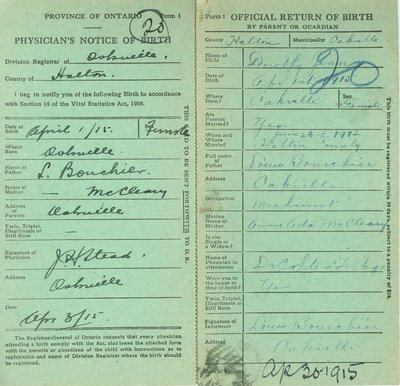 PROVINCE OF ONTARIO Form 1
20
PHYSICIAN'S NOTICE OF BIRTH
Division Registrar of Oakville.
County of Halton.
I beg to notify you of the following Birth in accordance
with Section 14 of the Vital Statistics Act, 1908.
Date of Birth April 1/15. Sex Female
Where Born Oakville
Name of Father L. Bourchier.
Name of Mother — McCleary
Address of Parents Oakville
Twin, Triplet, Illegitimate or Still Born
Signature of Physician J.H. Stead.
Address Oakville
Date Apr 3/15.
The Registrar-General of Ontario requests that every physician
attending a birth comply with this Act, also leave the attached form
with the parents or guardians of the child with instructions as to
registration and name of Division Registrar where the birth should
be registered.
THIS CARD TO BE SENT FORTHWITH TO D. R.
Form 1 OFFICIAL RETURN OF BIRTH
BY PARENT OR GUARDIAN
County Halton Municipality Oakville
Name of Child Dorothy
20
Date of Birth Apr 1st 1915
Where Born? Oakville Sex Female
Are Parents Married? Yes
When and Where Married June
Halton County
Full name of Father Louis Bourchier
Address Oakville
Occupation Machinist
Maiden Name of Mother McCleary
Is she Single or a Widow?
Name of Physician in attendance Dr
Were you in the house at time of birth? Yes
Twin, Triplet, Illegitimate or Still Born
Signature of Informant Louis Bourchier
Address Oakville
Date of Return AP 30 1915
This birth must be registered within 30 days, subject to a penalty of $10.